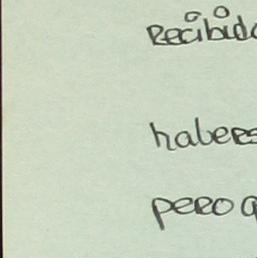 Recibido
habers
pero a